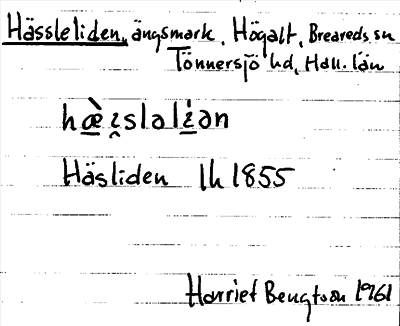 Hässleliden, ängsmark, Högalt, Breareds sn
Tönnersjö hd, Hall. län
hæ̠̀i̯sləli̠̇ən
Häsliden lh 1855
Harriet Bengtson 1961